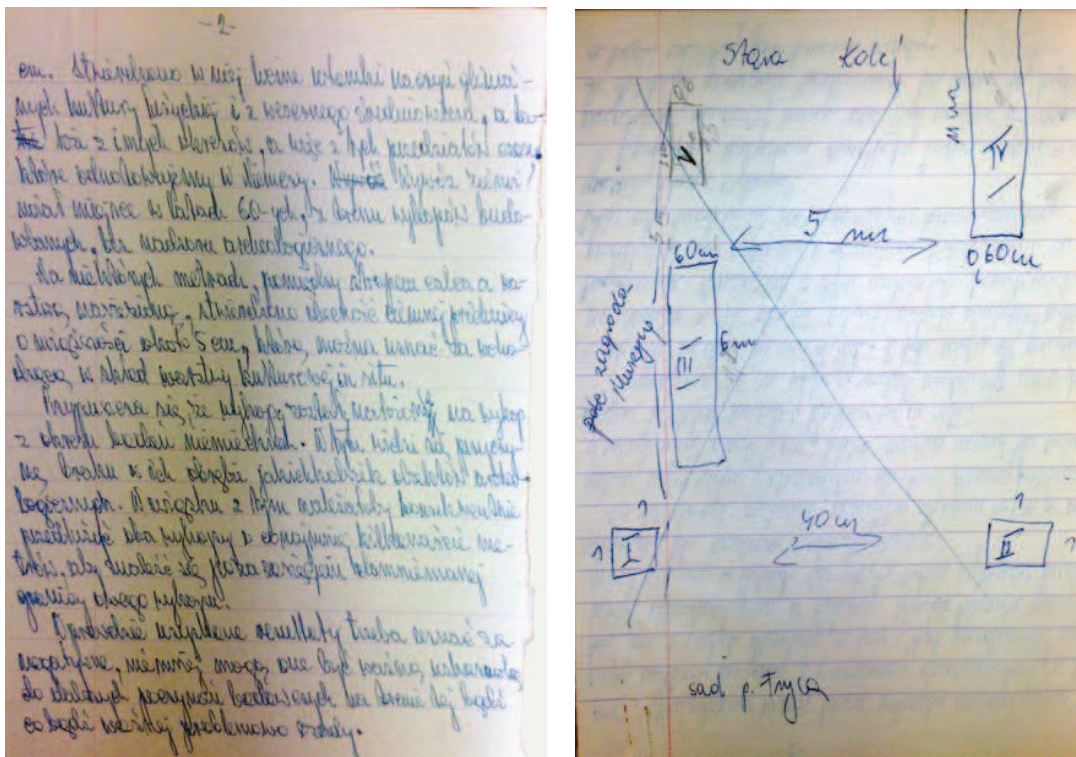 -2-
em. Stwierdzono w niej liczne ułamki naczyń glinia-
nych kultury łużyckiej i z wczesnego średniowiecza, a ta-
kże z innych okresów, a więc z tych przedziałów czasu,
które odnotowujemy w Niemczy. Wywóz ziemi
miał miejsce w latach 60-ych, z terenu wykopów budo-
wlanych, bez nadzoru archeologicznego.
Na niektórych metrach, pomiędzy stropem calca a wa-
rstwą nawiezioną, stwierdzono obecność ciemnej próchnicy
o miąższości około 5 cm, którą można uznać za wcho-
dzącą w skład warstwy kulturowej in situ.
Przypuszcza się, że wykopy zostały na wykop
z okresu badań niemieckich. W tym widzi się przyczy-
nę braku w ich obrębie jakichkolwiek obiektów archeo-
logicznych. W związku z tym należałoby
przedłużyć oba wykopy o conajmniej kilkanaście me-
trów, aby znaleźć się poza zasięgiem domniemanej
granicy obcego wykopu.
Oprawdzie uzyskane rezultaty trzeba uznać za
negatywne, niemniej mogą one być ważną wskazówką
do dalszych poczynań badawczych na terenie tej bądź
co bądź ważnej problemowo osady.
Stara kolej
V
11 m
IV
5 m
60cm
60cm
zagroda
III
6m
I
1
1
40m
II
1
1
sad p. Tryca